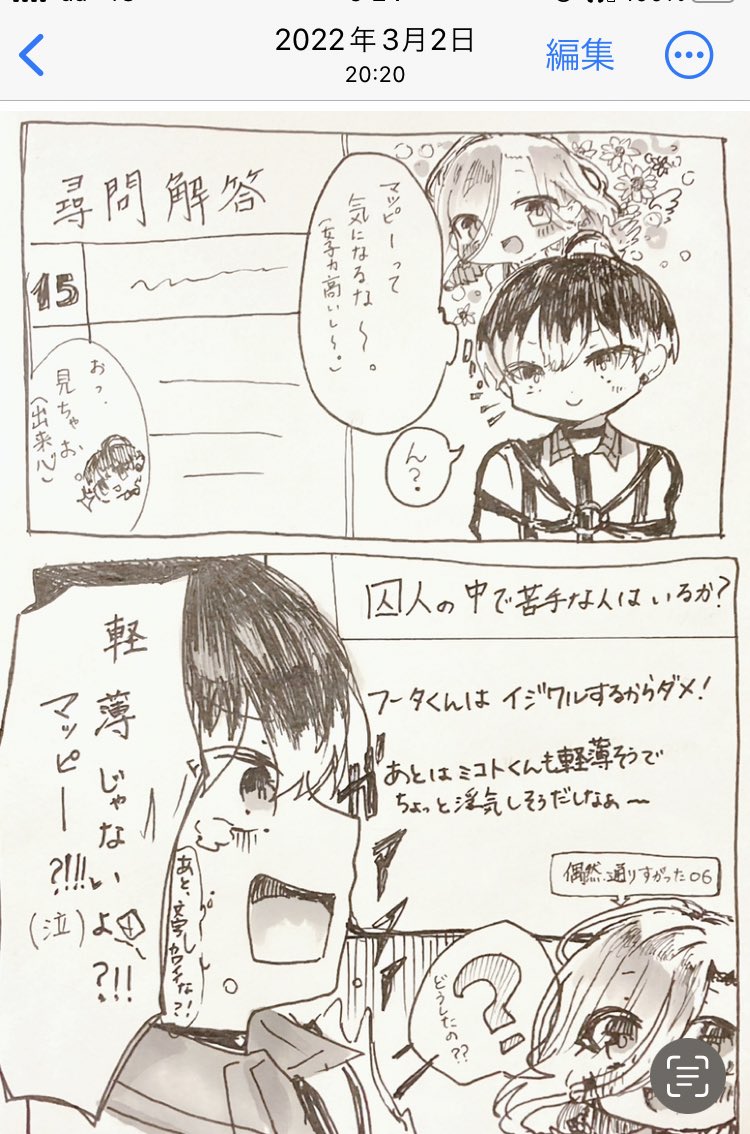 2022年3月2日
20:20
編集
マッピーって
気になるな〜。
(女子力高いし〜。)
尋問解答
15
ん?
おっ、
見ちゃお
(出来心)
囚人の中で苦手な人はいるか?
フータくんは イジワルするからダメ!
あとはミコトくんも軽薄そうで
ちょっと浮気しそうだしなぁ〜
軽薄じゃないよ?!!
マッピー?!!!
(泣)
あと、文字カワイイな?!
偶然通りすがった06
どうしたの??